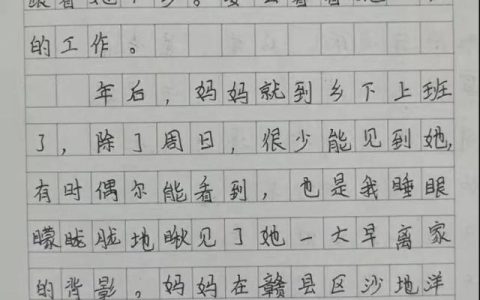 的工作。
年后，妈妈就到乡下上班
了，除了周日，很少能见到她，
有时偶尔能看到，也是我睡眼
矇眬眬地瞅见了她一大早离家
的背影。妈妈在赣县区沙地洋